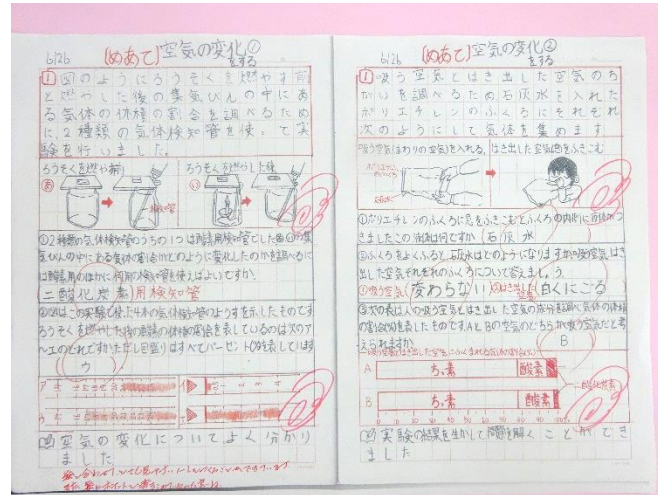 6/26 (めあて) 空気の変化①
をする
1 図のようにろうそくを燃やす前
と燃やした後の集気びんの中にあ
る気体の体積の割合を調べるため
に、2種類の気体検知管を使って実
験を行いました。
ろうそくを燃やす前
ろうそくを燃やした後
あ
い
検知管
①2種類の気体検知管のうちの1つは酸素用検知管でした
気びんの中にある気体の割合がどのように変化したのかを調べるに
は酸素用のほかに何用の検知管を使えばよいですか。
(二酸化炭素)用検知管
②図はこの実験で使った4本の気体検知管のようすを示したものです
ろうそくを燃やした後の酸素の体積の割合を表しているのは次のア
~エのどれですか。ただし目盛りはすべてパーセント(%)を表しています
ウ
ア
イ
ウ
エ
空気の変化についてよく分かり
ました
6/26 (めあて) 空気の変化②
をする
1 吸う空気とはき出した空気のち
がいを調べるため石灰水を入れた
ポリエチレンのふくろにそれぞれ
次のようにして気体を集めます
吸う空気(まわりの空気)を入れる。
はき出した空気をふきこむ
石灰水
①ポリエチレンのふくろに息をふきこむとふくろの内側に
きました。この液体は何ですか
石灰水
②ふくろをよくふると、石灰水はどのようになりますか。吸う空気、はき
出した空気それぞれのふくろについて答えましょう。
吸う空気(変わらない)
(白くにごる)
③次の表は人の吸う空気とはき出した空気の成分を調べ気体の体積
の割合(%)を表したものです。AとBの空気のどちらが吸う空気だと考
えられますか
B
A ちっ素 酸素
二酸化炭素
B ちっ素 酸素
0 10 20 30 40 50 60 70 80 90 100
実験の結果を生かして問題を解くことができ
ました